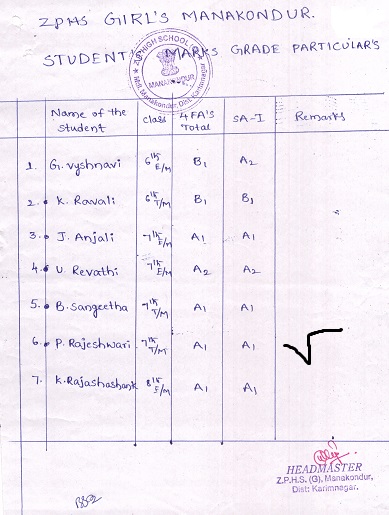 ZPHS GIRL'S MANAKONDUR.
STUDENT MARKS GRADE PARTICULAR'S
Z.P. HIGH SCHOOL (G)
MANAKONDUR
Mdl: Manakondur, Dist: Karimnagar.
Name of the Student class 4 FA's Total SA-I Remarks
1. G. vyshnavi 6th E/M B1 A2
2. K. Ravali 6th T/M B1 B1
3. J. Anjali 7th E/M A1 A1
4. U. Revathi 7th E/M A2 A2
5. B. Sangeetha 7th T/M A1 A1
6. P. Rajeshwari 7th T/M A1 A1
7. K. Rajashashank 8th E/M A1 A1
HEADMASTER
Z.P.H.S. (G), Manakondur,
Dist: Karimnagar.